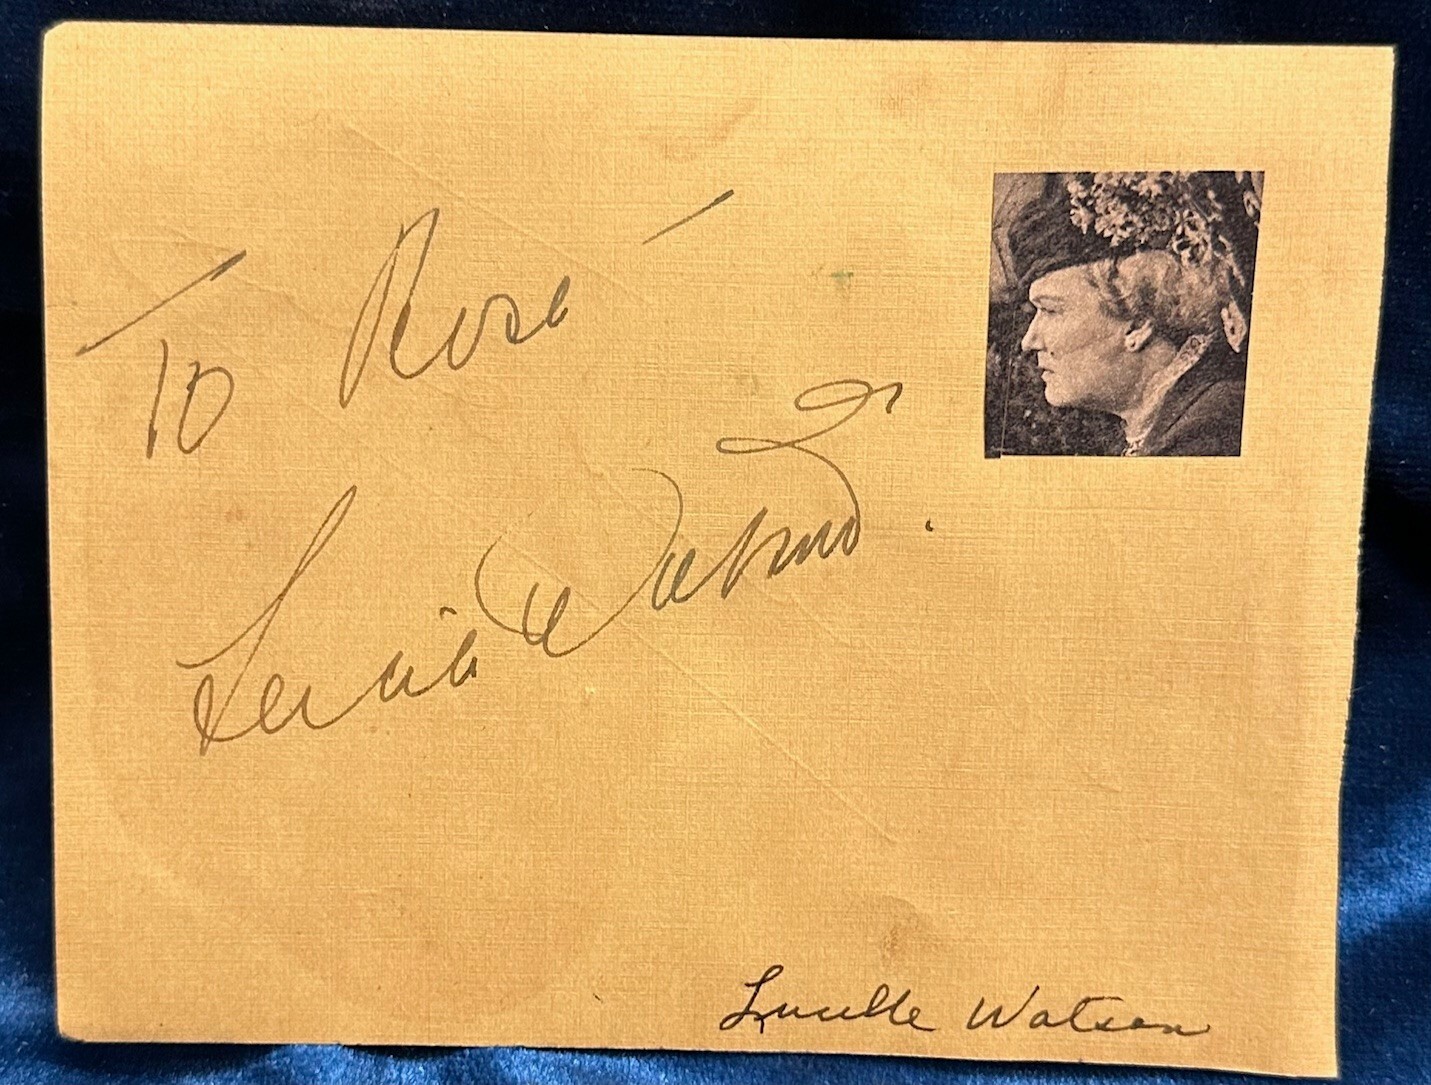 To Rose
Lucile Watson
Lucille Watson